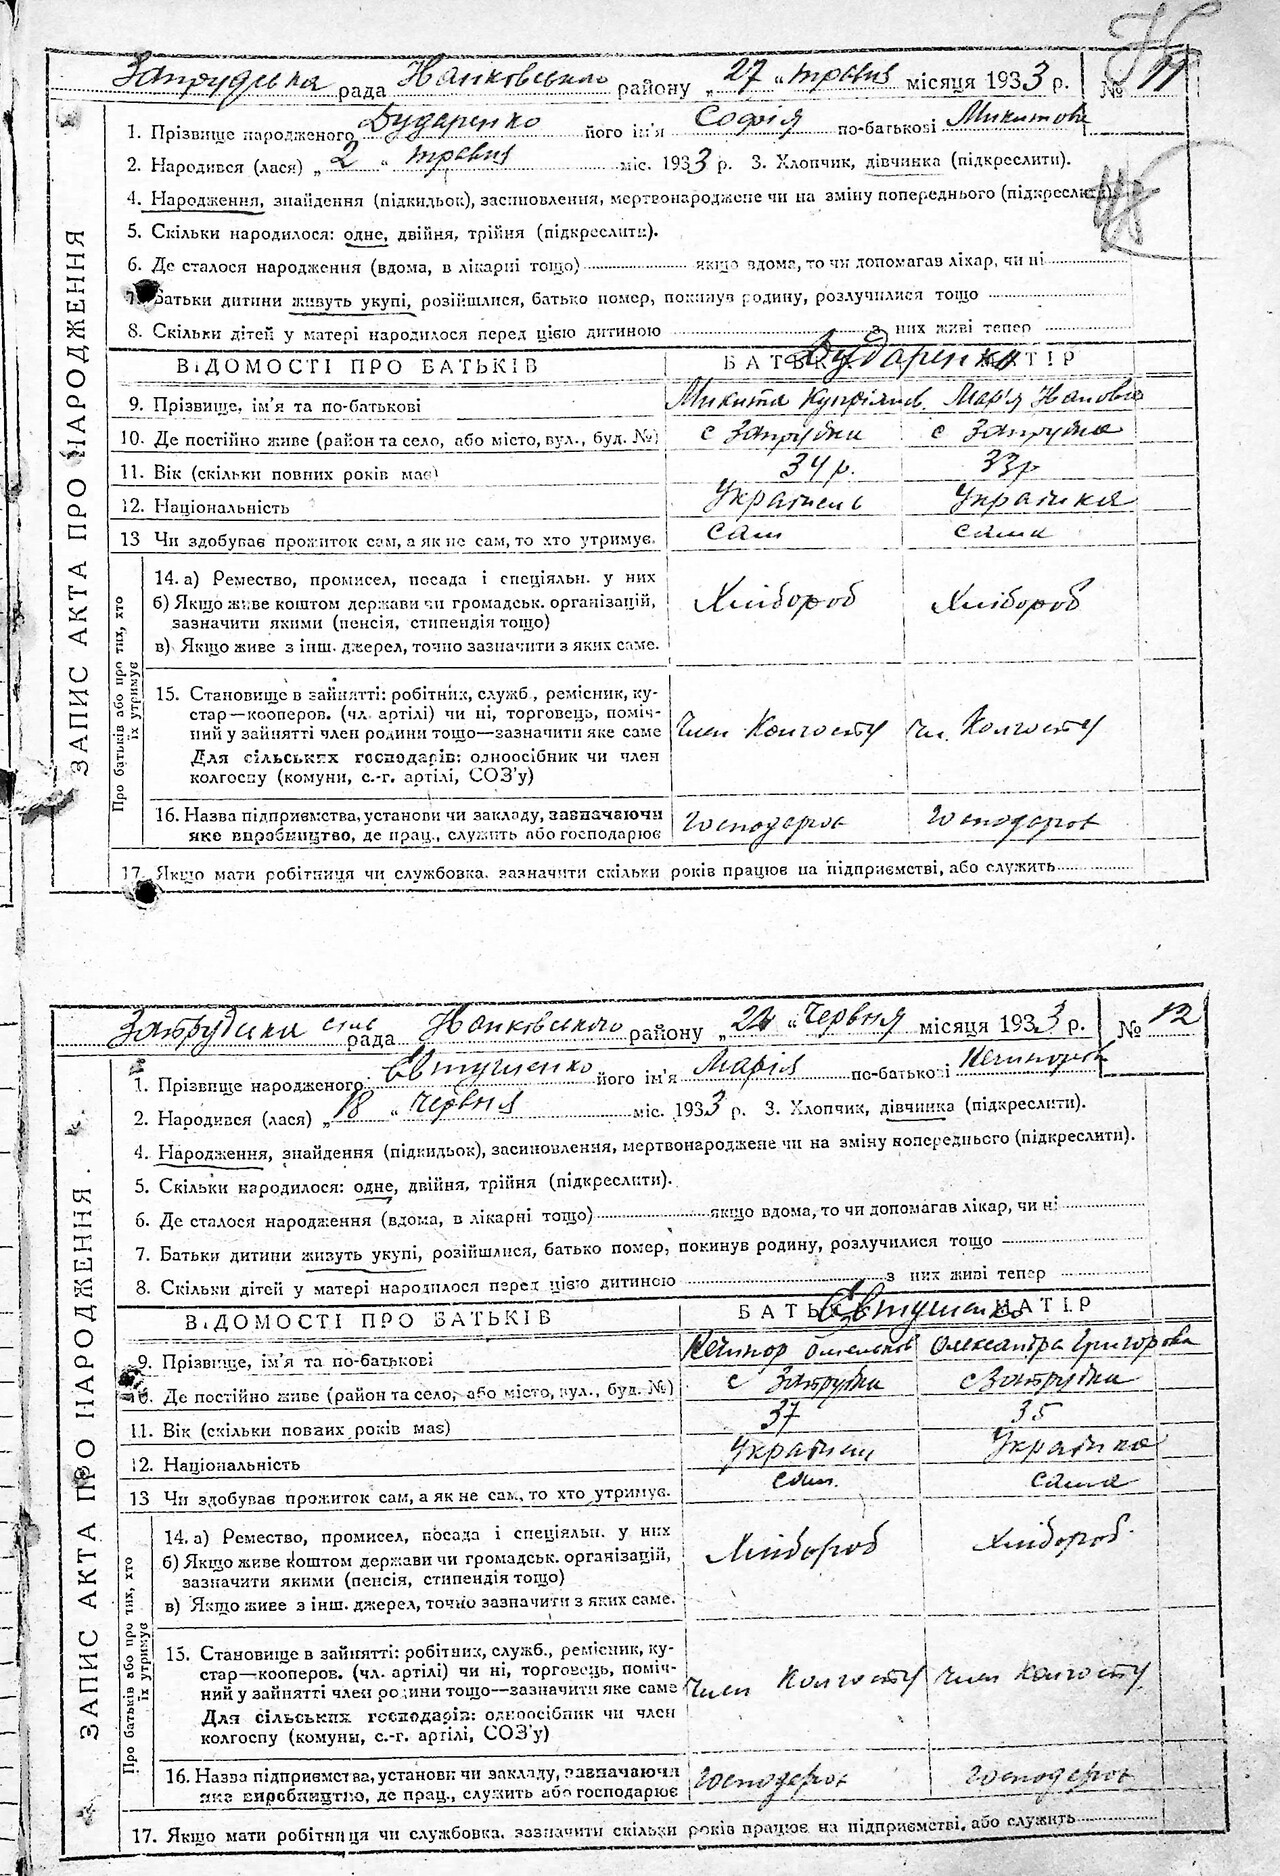 Запрудська рада району „27“ травня місяця 1933 р. № 11
ЗАПИС АКТА ПРО НАРОДЖЕННЯ
1. Прізвище народженого Бударенко його ім'я Софія по-батькові
2. Народився (лася) „2“ травня міс. 1933 р. 3. Хлопчик, дівчинка (підкреслити).
4. Народження, знайдення (підкидьок), засиновлення, мертвонароджене чи на зміну попереднього (підкреслити)
5. Скільки народилося: одне, двійня, трійня (підкреслити).
6. Де сталося народження (вдома, в лікарні тощо) якщо вдома, то чи допомагав лікар, чи ні
7. Батьки дитини живуть укупі, розійшлися, батько помер, покинув родину, розлучилися тощо
8. Скільки дітей у матері народилося перед цією дитиною з них живі тепер
ВІДОМОСТІ ПРО БАТЬКІВ БАТЬКО МАТІР
Бударенко
9. Прізвище, ім'я та по-батькові Микита Купріянов. Мар'я Івановна
10. Де постійно живе (район та село, або місто, вул., буд. №) с Запрудка с Запрудка
11. Вік (скільки повних років має) 34 р. 33 р
12. Національність Українець Українка
13 Чи здобуває прожиток сам, а як не сам, то хто утримує. сам сама
Про батьків або про тих, хто їх утримує
14. а) Ремество, промисел, посада і спеціяльн. у них
б) Якщо живе коштом держави чи громадськ. організацій,
зазначити якими (пенсія, стипендія тощо)
в) Якщо живе з інш. джерел, точно зазначити з яких саме.
Хлібороб Хлібороб
15. Становище в зайнятті: робітник, служб., ремісник, ку-
стар—кооперов. (чл. артілі) чи ні, торговець, поміч-
ний у зайнятті член родини тощо—зазначити яке саме
Для сільських господарів: одноосібник чи член
колгоспу (комуни, с.-г. артілі, СОЗ'у)
Член Колгоспу Чл. Колгоспу
16. Назва підприємства, установи чи закладу, зазначаючи
яке виробництво, де прац., служить або господарює
17. Якщо мати робітниця чи службовка. зазначити скільки років працює на підприємстві, або служить
рада району „24“ Червня місяця 1933 р. № 12
ЗАПИС АКТА ПРО НАРОДЖЕННЯ
1. Прізвище народженого Євтушенко його ім'я Марія по-батькові
2. Народився (лася) „18“ Червня міс. 1933 р. 3. Хлопчик, дівчинка (підкреслити).
4. Народження, знайдення (підкидьок), засиновлення, мертвонароджене чи на зміну попереднього (підкреслити).
5. Скільки народилося: одне, двійня, трійня (підкреслити).
6. Де сталося народження (вдома, в лікарні тощо) якщо вдома, то чи допомагав лікар, чи ні
7. Батьки дитини живуть укупі, розійшлися, батько помер, покинув родину, розлучилися тощо
8. Скільки дітей у матері народилося перед цією дитиною з них живі тепер
ВІДОМОСТІ ПРО БАТЬКІВ БАТЬКО МАТІР
Євтушенко
9. Прізвище, ім'я та по-батькові Олександра Григорова
10. Де постійно живе (район та село, або місто, вул., буд. №) с Запрудка с Запрудка
11. Вік (скільки повних років має) 37 35
12. Національність Українец Українка
13 Чи здобуває прожиток сам, а як не сам, то хто утримує. сам. сама
Про батьків або про тих, хто їх утримує
14. а) Ремество, промисел, посада і спеціяльн. у них
б) Якщо живе коштом держави чи громадськ. організацій,
зазначити якими (пенсія, стипендія тощо)
в) Якщо живе з інш. джерел, точно зазначити з яких саме.
Хлібороб Хлібороб
15. Становище в зайнятті: робітник, служб., ремісник, ку-
стар—кооперов. (чл. артілі) чи ні, торговець, поміч-
ний у зайнятті член родини тощо—зазначити яке саме
Для сільських господарів: одноосібник чи член
колгоспу (комуны, с.-г. артілі, СОЗ'у)
Член Колгоспу Член Колгоспу
16. Назва підприємства, установи чи закладу, зазначаючи
яке виробництво, де прац., служить або господарює
17. Якщо мати робітниця чи службовка. зазначити скільки років працює на підприємстві, або служить